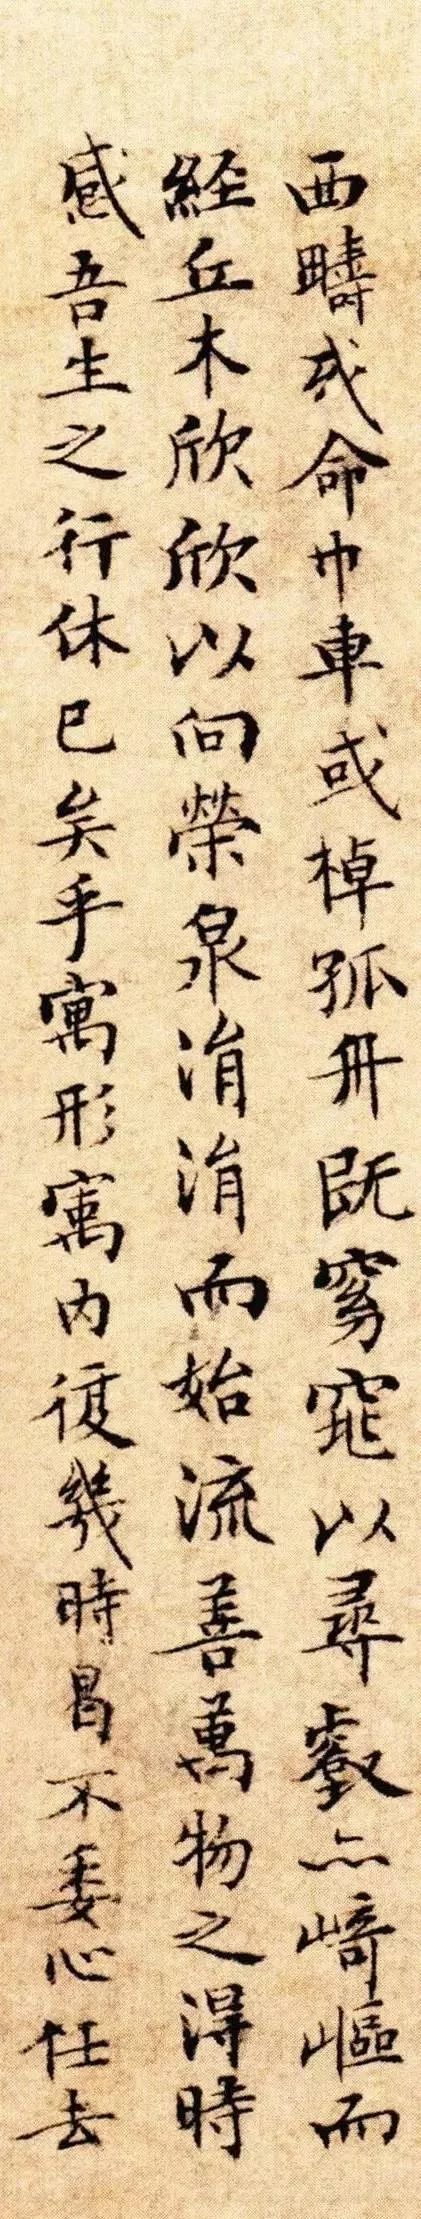 西疇或命巾車或棹孤舟既窈窕以尋壑亦崎嶇而
經丘木欣欣以向榮泉涓涓而始流善萬物之得時
感吾生之行休已矣乎寓形寓内復幾時曷不委心任去